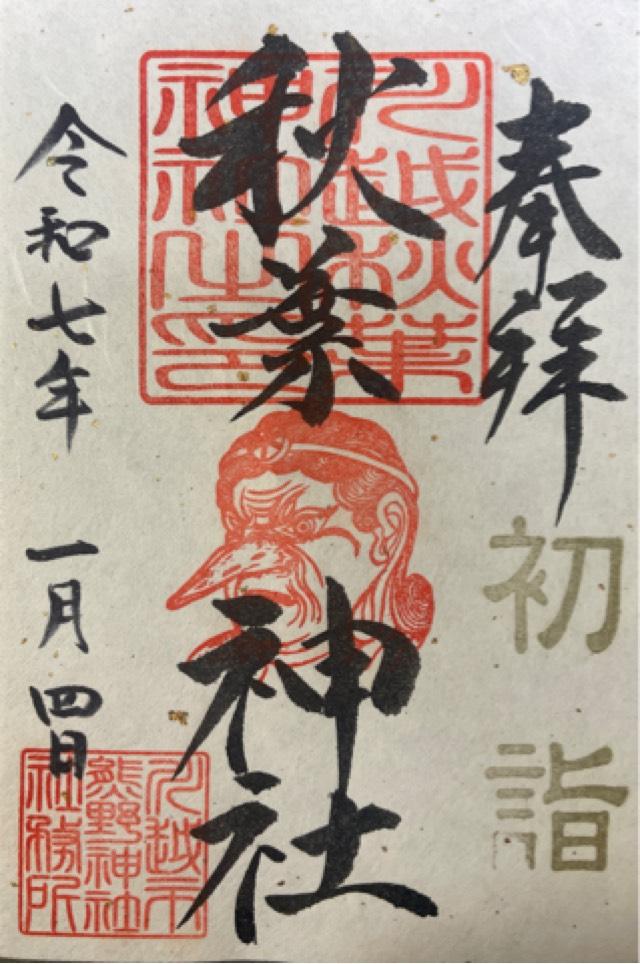 奉拝
初詣
秋葉神社
川越秋葉
神社之印
令和七年 一月四日
川越市
熊野神社
社務所